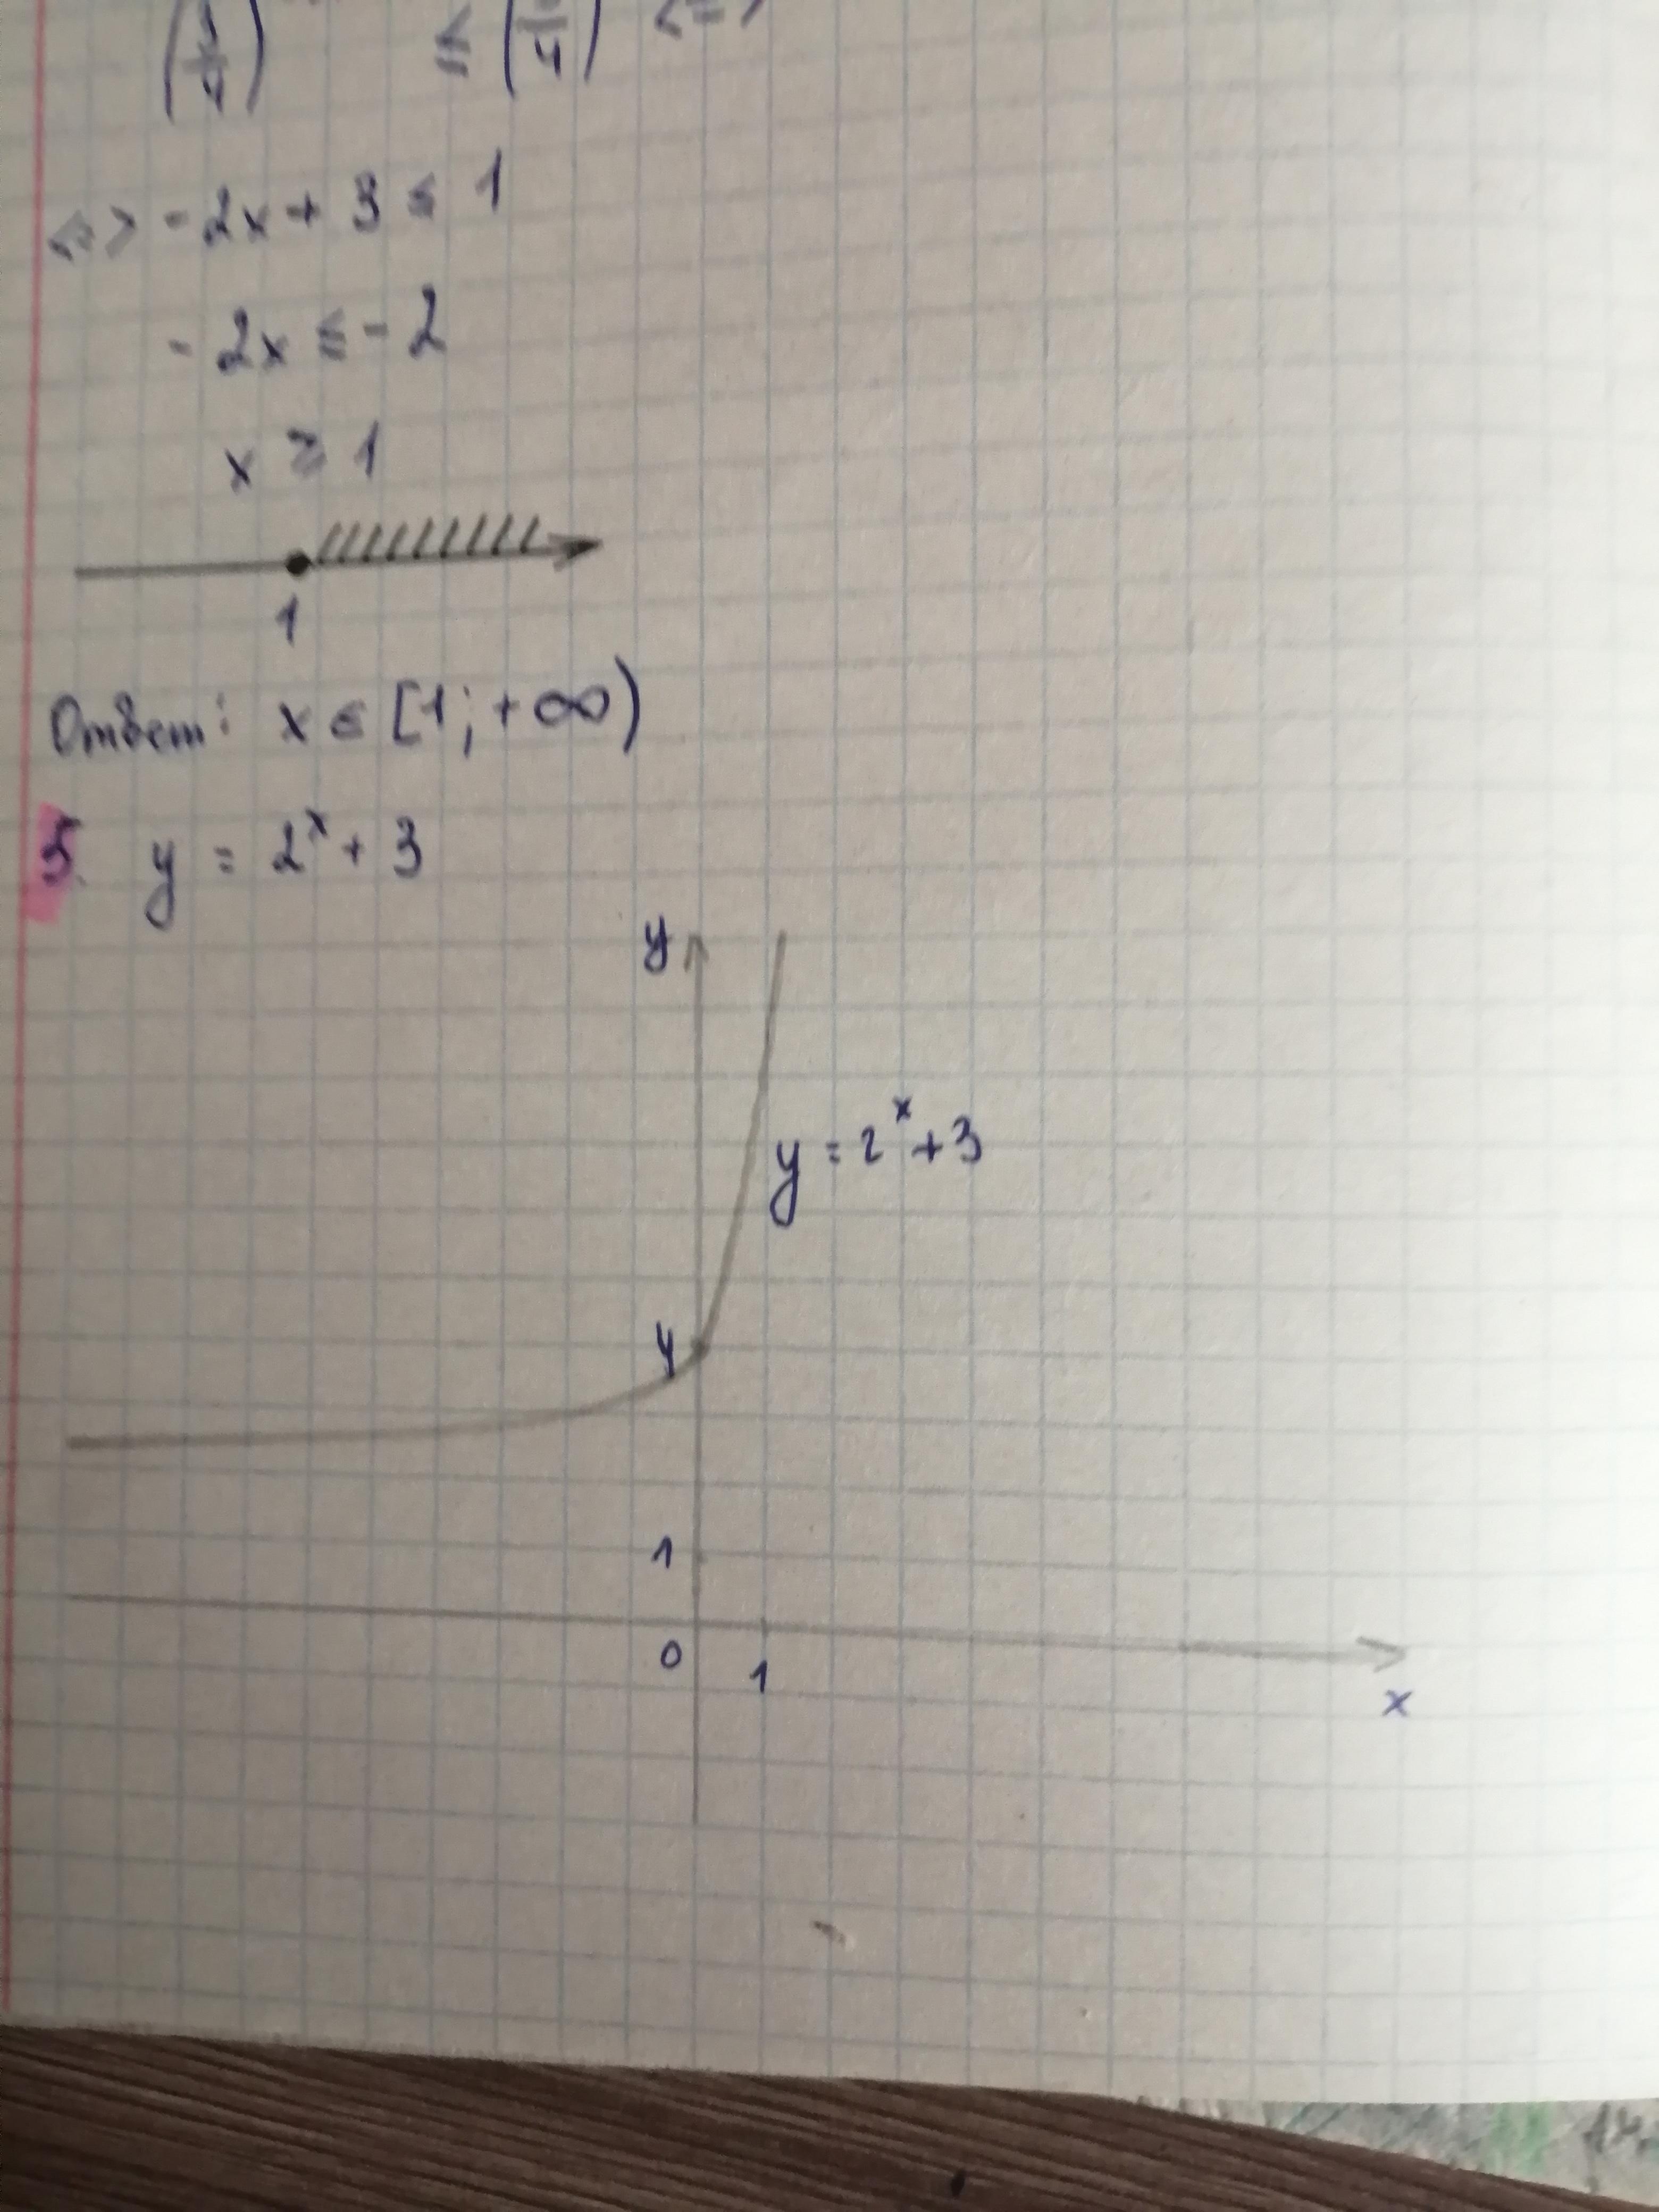 (3/4) ≤ ( /4) <=>
<=> -2x + 3 ≤ 1
-2x ≤ -2
x ≥ 1
1
Ответ: x ∈ [1; +∞)
5. y = 2ˣ + 3
y
y = 2ˣ + 3
4
1
0 1
x